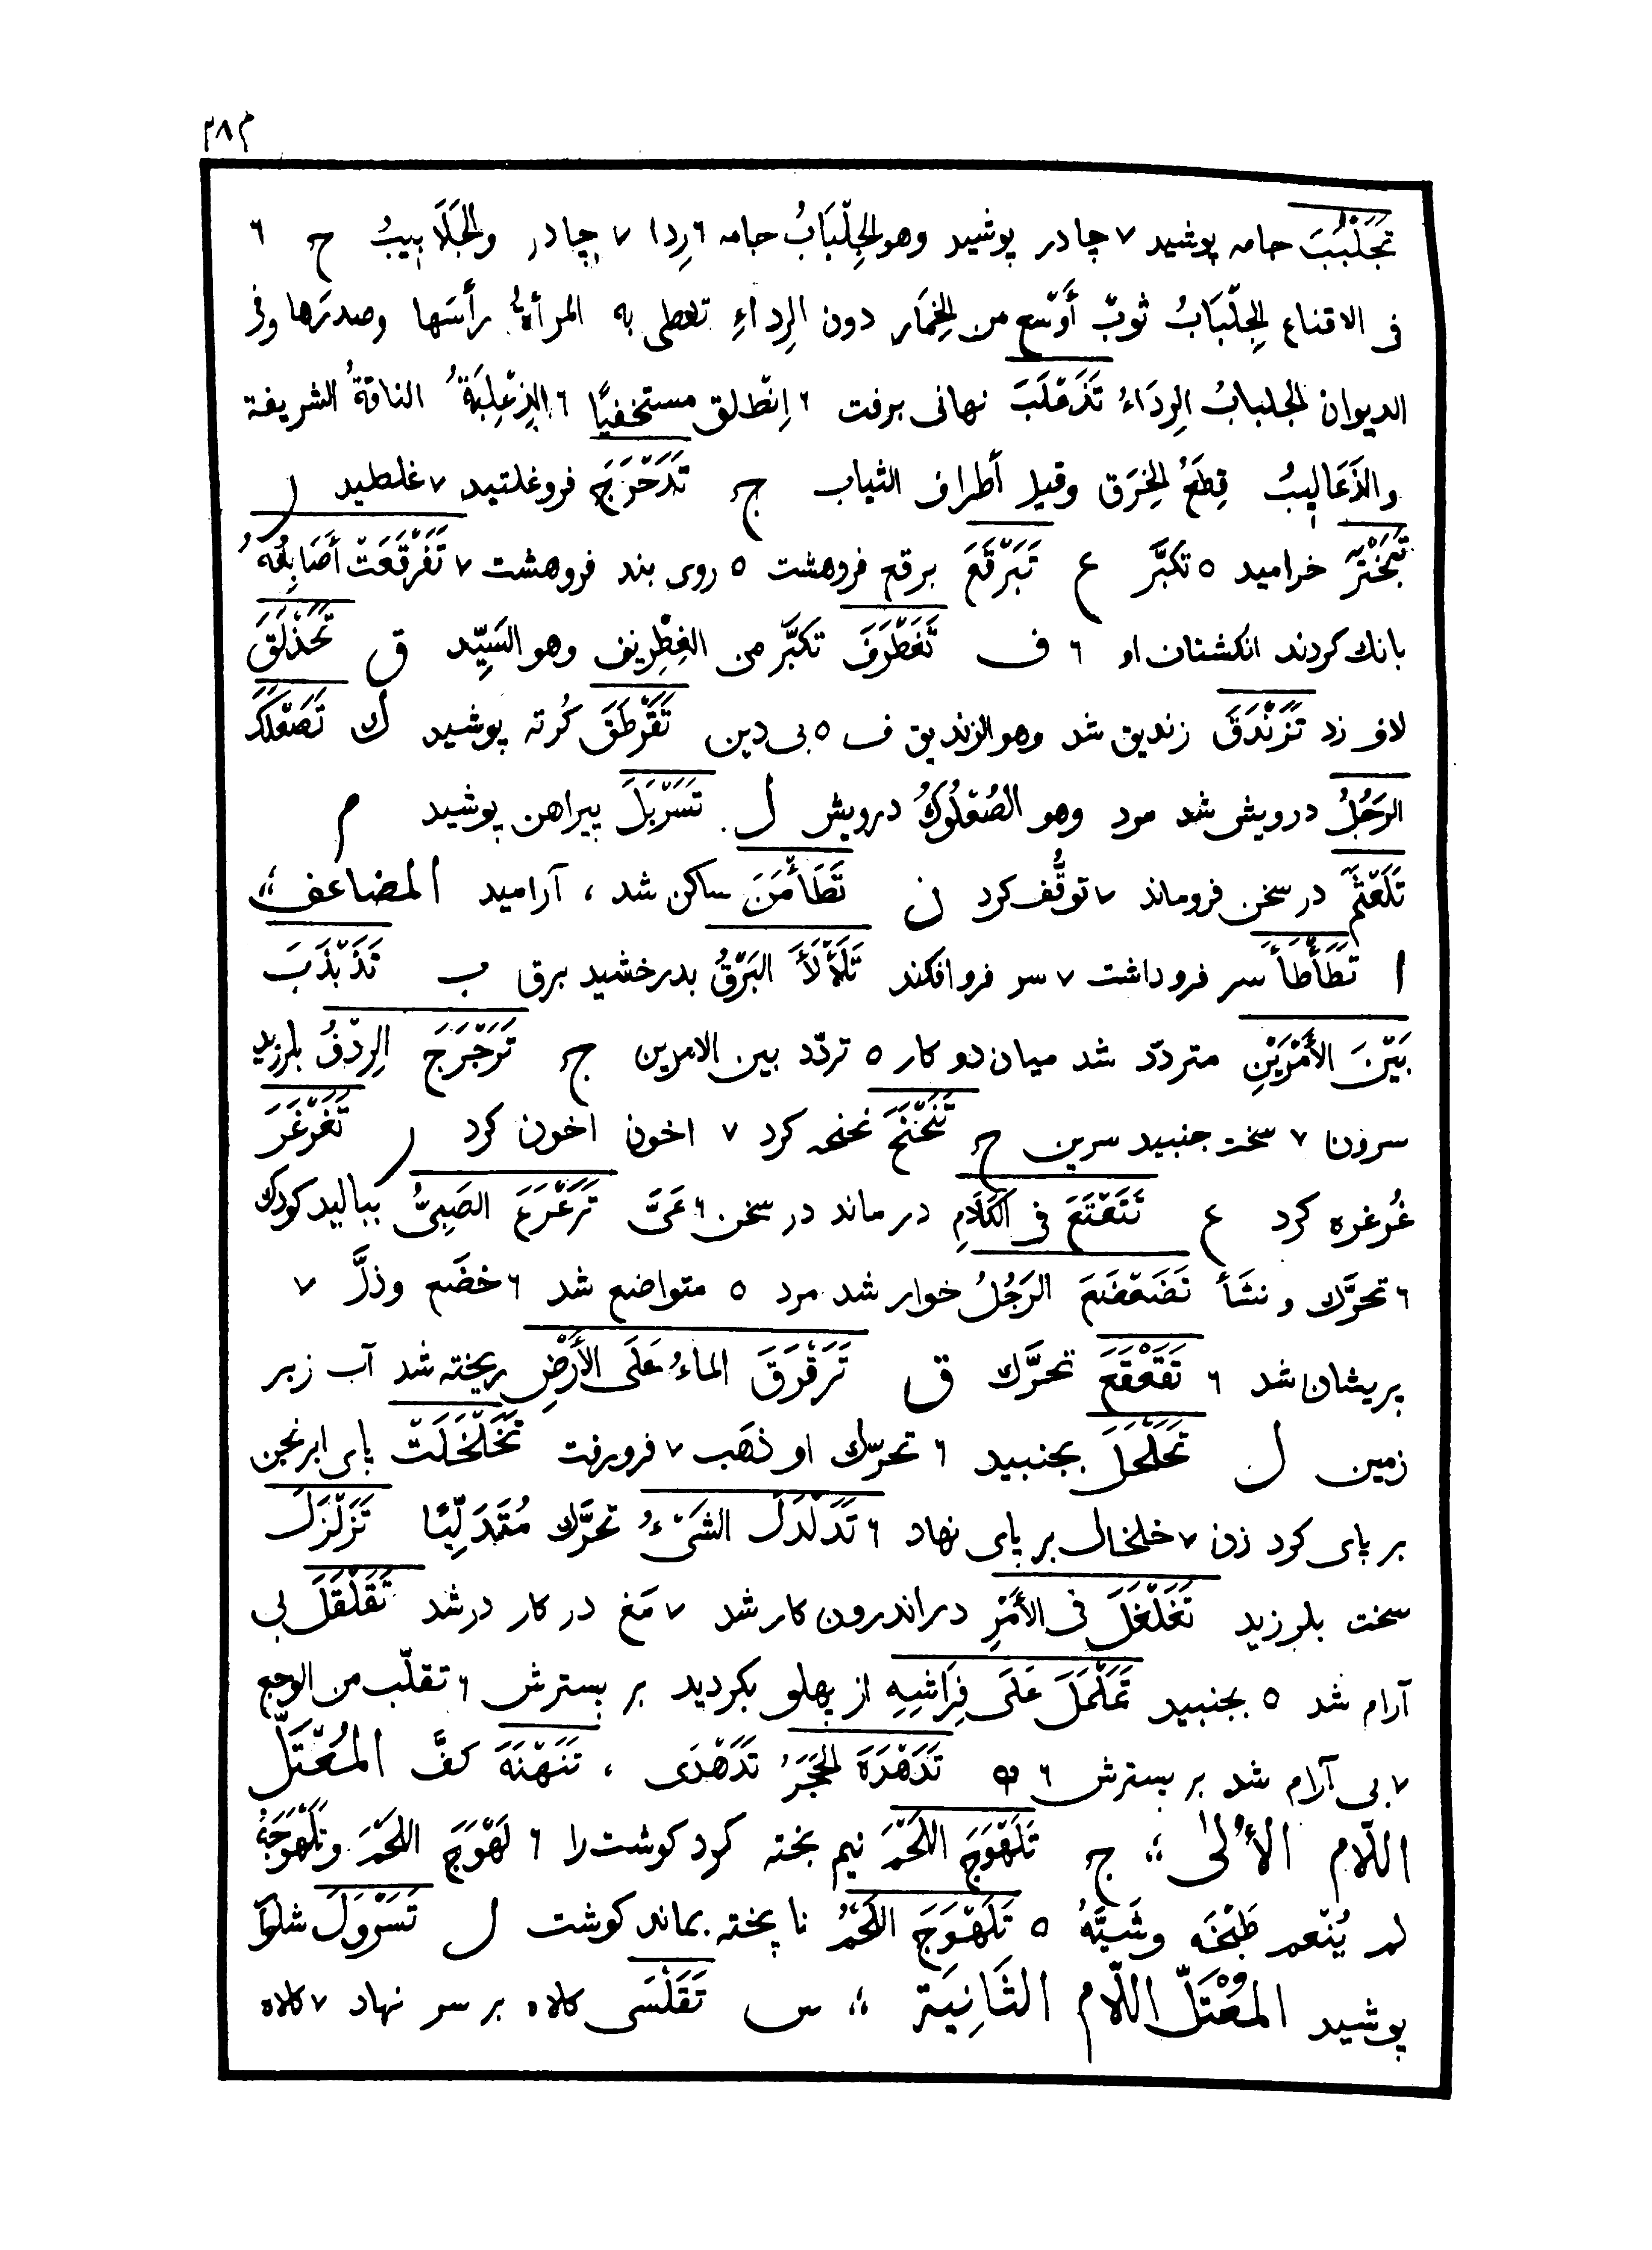 م۲۸
تَجَلْبَبَ جامه پوشید ۷ چادر پوشید وهو الجِلْبَابُ جامه ٦ رِدا ۷ چادر والجَلَابِيبُ ح ٦
فى الاقناع الجِلْبَابُ ثوبٌ أَوْسَع من الخِمَار دون الرِداءِ تغطى به المرأةُ رأسَها وصدرَها وفى
الديوان الجلبابُ الرِدَاءُ تَذَعْلَبَ نهانى برفت ٦ اِنْطلق مستخفيًا ٦ الذِعْلِبَةُ الناقةُ الشريفة
والذَعَالِيبُ قِطَعُ الخِرَق وقيل أطراف الثياب ج تَدَحْرَجَ فروغلتيد ۷ غلطيد ر
تَبَخْتَرَ خراميد ٥ تكبَّر ع تَبَرْقَعَ برقع فروهشت ٥ روى بند فروهشت ۷ تَفَرْقَعَتْ أصَابِعُهُ
بانك كردند انكشتان او ٦ ف تَغَطْرَفَ تكبَّر من الغِطْرِيف وهو السَيِّد ق تَحَذْلَقَ
لاف زد تَزَنْدَقَ زنديق شد وهو الزنديق ف ٥ بى دين تَقَرْطَقَ كُرته پوشيد ك تَصَعْلَكَ
الرَجُلُ درويش شد مرد وهو الصُعْلُوكُ درويش ل تَسَرْبَلَ پيراهن پوشيد م
تَلَعْثَمَ در سخن فروماند ۷ توقُّف كرد ن تَطَأْمَنَ ساكن شد ، آراميد المضاعف ؛؛
ا تَطَأْطَأَ سر فروداشت ۷ سر فروافكند تَلَأْلَأَ البَرْقُ بدرخشيد برق ب تَذَبْذَبَ
بَيْنَ الأَمْرَيْنِ متردّد شد ميان دو كار ٥ تردّد بين الامرين ج تَرَجْرَجَ الرِدْفُ بلرزيد
سرون ۷ سخت جنبيد سرين ح تَنَحْنَحَ نحنحه كرد ۷ اخون اخون كرد ر تَغَرْغَرَ
غُرغره كرد ع تَتَعْتَعَ فى الكَلَامِ درماند در سخن ٦ عَىَّ تَرَعْرَعَ الصَبِىُّ بباليد كودك
٦ تحرَّك و نشَأ تَضَعْضَعَ الرَجُلُ خوار شد مرد ٥ متواضع شد ٦ خضَع وذلَّ ۷
پريشان شد ٦ تَقَعْقَعَ تحرَّك ق تَرَقْرَقَ الماءُ عَلَى الأَرْضِ ريخته شد آب زبر
زمين ل تَحَلْحَلَ بجنبيد ٦ تحرّك او ذهَب ۷ فرورفت تَخَلْخَلَتْ باى ابرنجن
بر پاى كرد زن ۷ خلخال بر پاى نهاد ٦ تَدَلْدَلَ الشَىْءُ تحرَّك مُتَدَلِّيًا تَزَلْزَلَ
سخت بلرزيد تَغَلْغَلَ فى الأَمْرِ در اندرون كار شد ۷ مَغ در كار درشد تَقَلْقَلَ بى
آرام شد ٥ بجنبيد تَمَلْمَلَ عَلَى فِرَاشِهِ از پهلو بكرديد بر بسترش ٦ تقلّب من الوجع
۷ بى آرام شد بر بسترش ٦ ه تَدَهْدَهَ الحَجَرُ تَدَهْدَى ، تَنَهْنَهَ كفَّ المُعْتَلّ
اللّام الأُولىٰ ؛؛ ج تَلَهْوَجَ اللَحْمَ نيم پخته كرد كوشت را ٦ لَهْوَجَ اللحْمَ وتَلَهْوَجَهُ
لم يُنْعم طَبْخَه وشَيَّهُ ٥ تَلَهْوَجَ اللَحْمُ نا پخته بماند كوشت ل تَسَرْوَلَ شلوار
پوشيد المُعْتَلّ اللّام الثَانِيَة ؛؛ س تَقَلْسَى كلاه بر سر نهاد ۷ كلاه